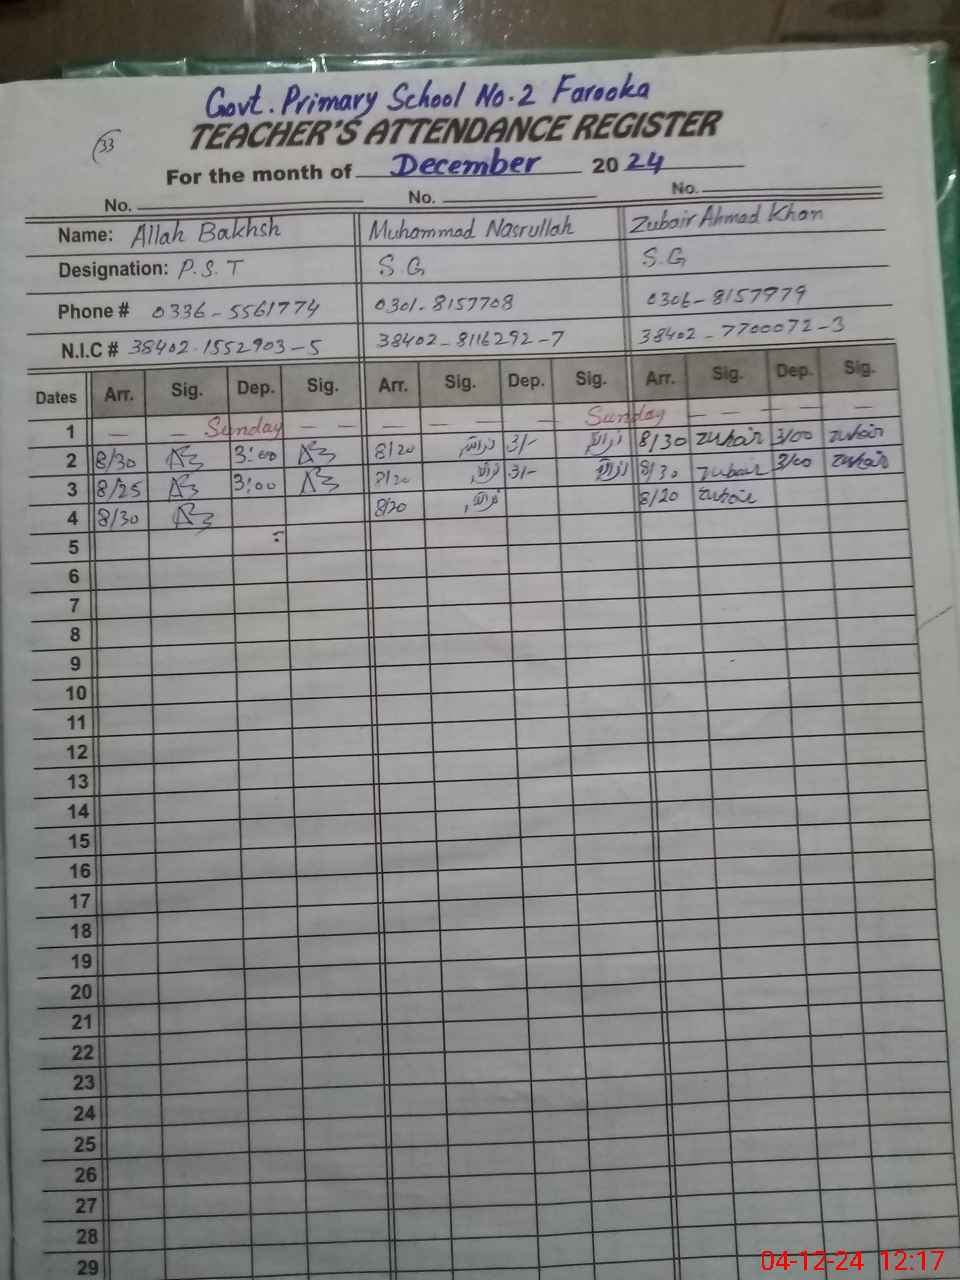 Govt. Primary School No.2 Farooka
TEACHER'S ATTENDANCE REGISTER
33
For the month of December 2024
No. No. No.
Name: Allah Bakhsh Muhammad Nasrullah Zubair Ahmad Khan
Designation: P.S.T S.G S.G
Phone # 0336-5561774 0301-8157708 0306-8157979
N.I.C # 38402-1552903-5 38402-8116292-7 38402-7700072-3
Dates Arr. Sig. Dep. Sig. Arr. Sig. Dep. Sig. Arr. Sig. Dep. Sig.
1 — — Sunday — — — — — — Sunday — — — —
2 8/30 3:00 8/20 3/- 8/30 zubair 3/00 zubair
3 8/25 3:00 8/20 3/- 8/30 zubair 3/00 zubair
4 8/30 8/20 8/20 zubair
5
6
7
8
9
10
11
12
13
14
15
16
17
18
19
20
21
22
23
24
25
26
27
28
29
04-12-24 12:17